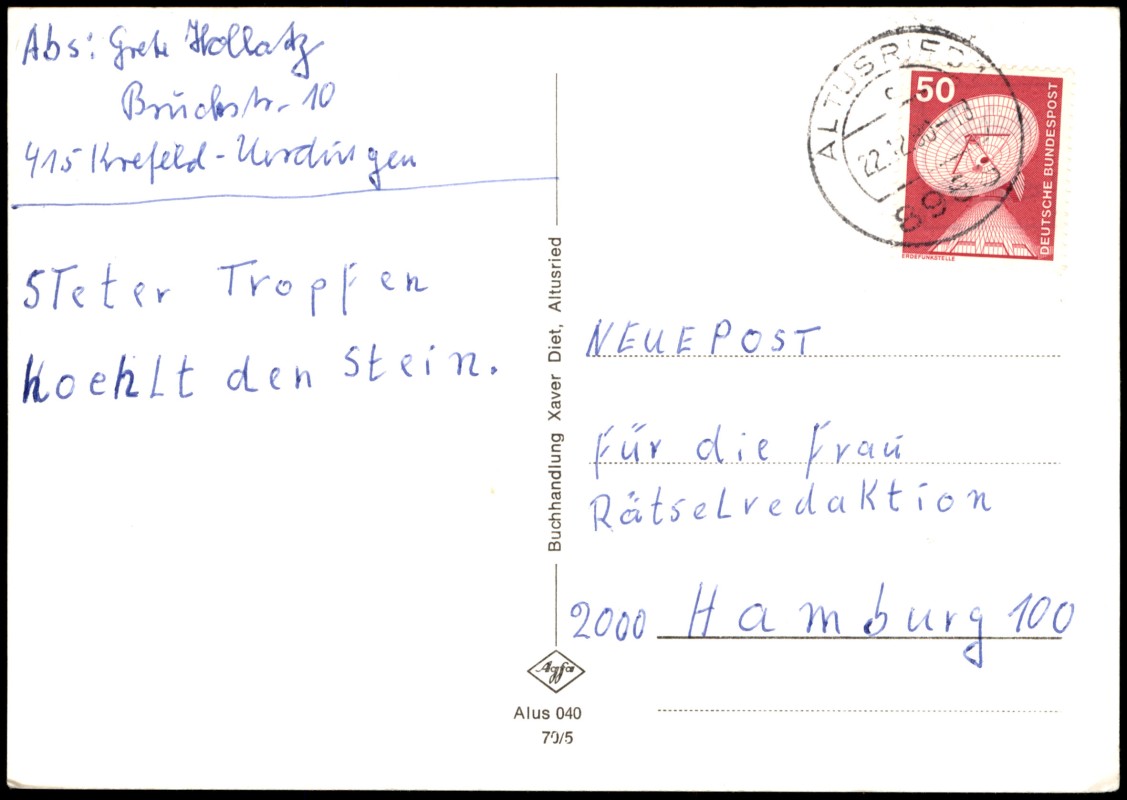 Abs: Grete Hollatz
Bruchstr. 10
415 Krefeld-Uerdingen
STeter Tropfen
Koehlt den Stein.
Buchhandlung Xaver Diet, Altusried
ALTUSRIED 1
22.12.80-18
50
DEUTSCHE BUNDESPOST
ERDEFUNKSTELLE
NEUE POST
für die Frau
RätseLredaKtion
2000 Hamburg 100
Agfa
Alus 040
70/5